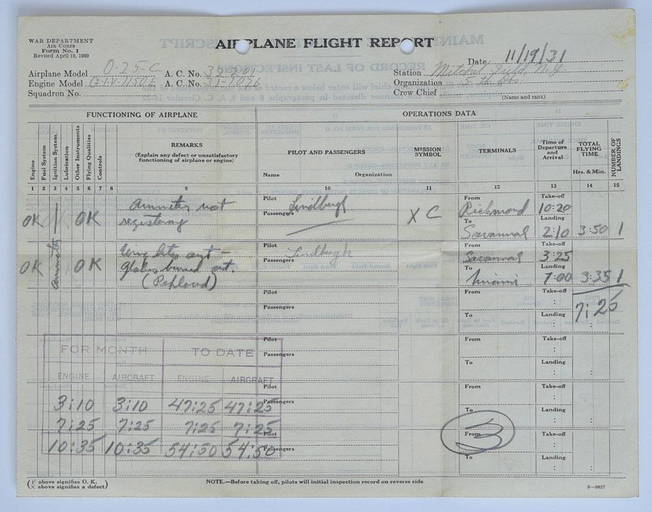 WAR DEPARTMENT
AIR CORPS
Form No. 1
Revised April 10, 1930
AIRPLANE FLIGHT REPORT
Date 11/19/31
Airplane Model O-25-C A. C. No.
Station Mitchel Field, N.Y.
Engine Model A. C. No.
Organization
Squadron No.
Crew Chief
(Name and rank)
FUNCTIONING OF AIRPLANE
OPERATIONS DATA
Engine
Fuel System
Ignition System
Lubrication
Other Instruments
Flying Qualities
Controls
REMARKS
(Explain any defect or unsatisfactory functioning of airplane or engine)
PILOT AND PASSENGERS
Name Organization
MISSION SYMBOL
TERMINALS
Time of Departure and Arrival
TOTAL FLYING TIME
Hrs. & Min.
NUMBER OF LANDINGS
1 2 3 4 5 6 7 8 9 10 11 12 13 14 15
OK OK Ammeter not registering
Pilot Lindbergh
Passengers
XC
From Richmond Take-off 10:20
To Savannah Landing 2:10 3:50 1
OK Ammeter OK
Pilot Lindbergh
Passengers
From Savannah Take-off 3:25
To Miami Landing 7:00 3:35 1
Pilot
Passengers
From Take-off
To Landing
7:25
FOR MONTH TO DATE
ENGINE AIRCRAFT ENGINE AIRCRAFT
3:10 3:10 47:25 47:25
7:25 7:25 7:25 7:25
10:35 10:35 54:50 54:50
Pilot
Passengers
From Take-off
To Landing
Pilot
Passengers
From Take-off
To Landing
Pilot
Passengers
From Take-off
To Landing
3
(√ above signifies O. K.
(x above signifies a defect)
NOTE.—Before taking off, pilots will initial inspection record on reverse side.